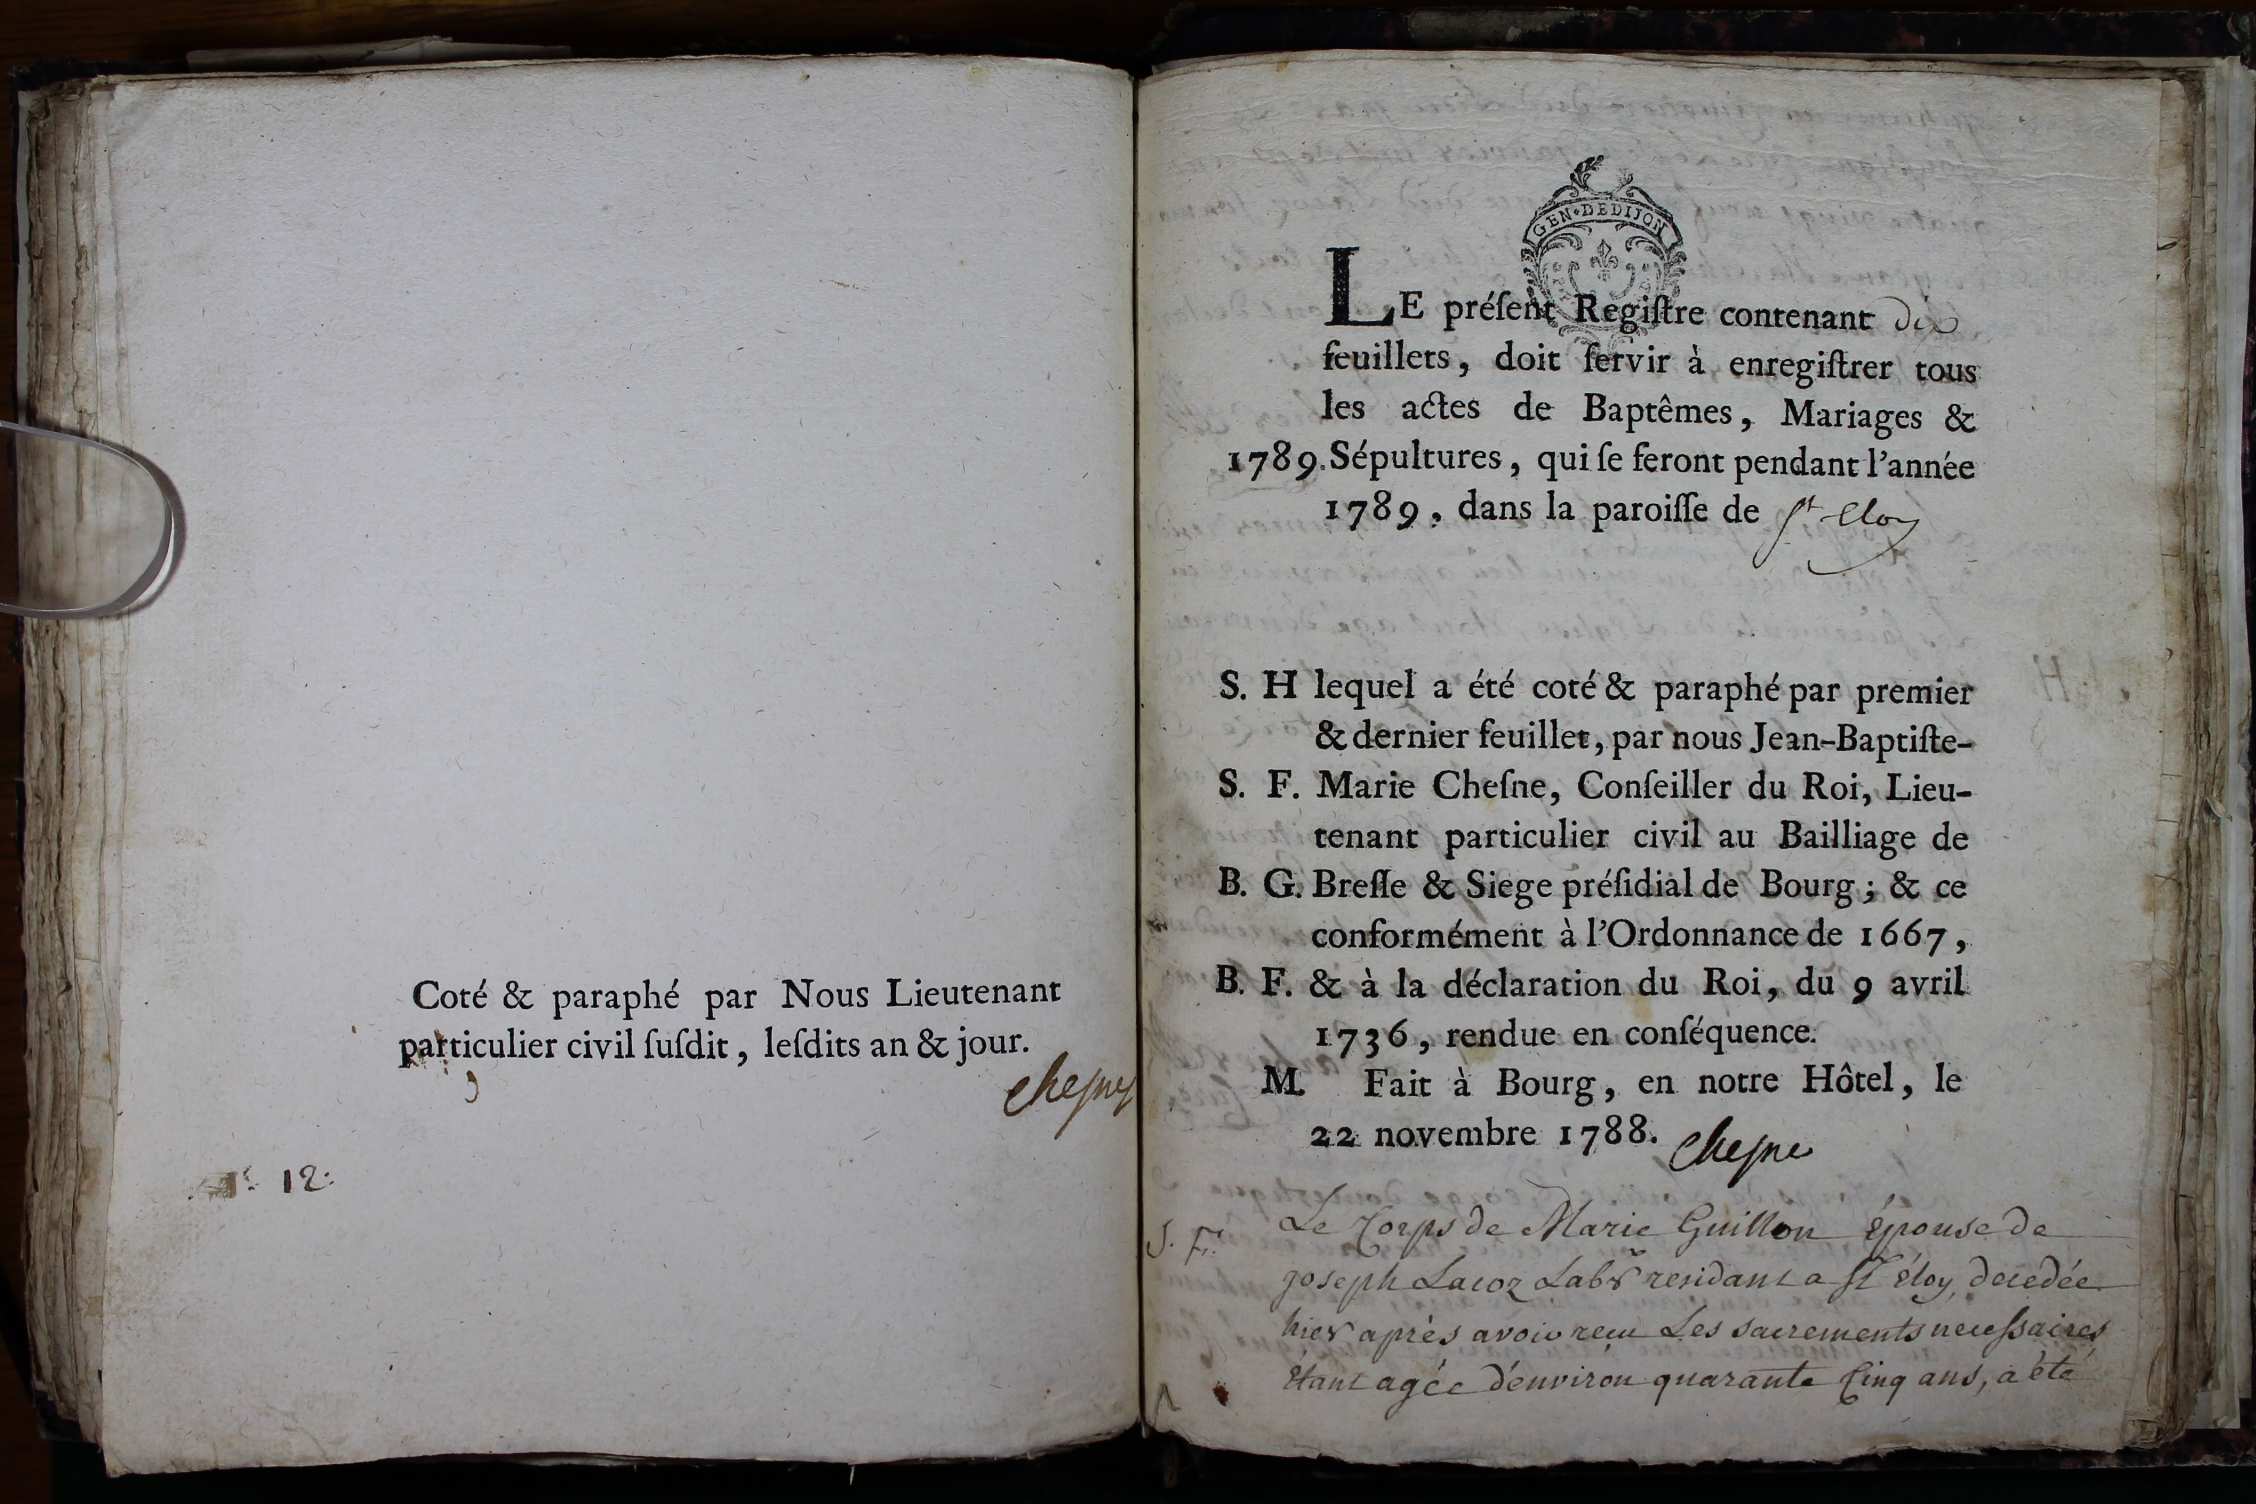 Coté & paraphé par Nous Lieutenant
particulier civil ſuſdit, leſdits an & jour.
Cheſne
12.
GEN•DEDIJON
LE préſent Regiſtre contenant dix
feuillets, doit ſervir à enregiſtrer tous
les actes de Baptêmes, Mariages &
1789. Sépultures, qui ſe feront pendant l'année
1789, dans la paroiſſe de St Eloy
S. H lequel a été coté & paraphé par premier
& dernier feuillet, par nous Jean-Baptiſte-
S. F. Marie Cheſne, Conſeiller du Roi, Lieu-
tenant particulier civil au Bailliage de
B. G. Breſſe & Siege préſidial de Bourg; & ce
conformément à l'Ordonnance de 1667,
B. F. & à la déclaration du Roi, du 9 avril
1736, rendue en conſéquence.
M. Fait à Bourg, en notre Hôtel, le
22 novembre 1788.
Cheſne
S. F. Le Corps de Marie Guillon épouse de
joseph Lacoz Labr residant a St Eloy, decedée
hier après avoir reçu Les sacrements neceſsaires
Étant agée d'environ quarante Cinq ans, a été